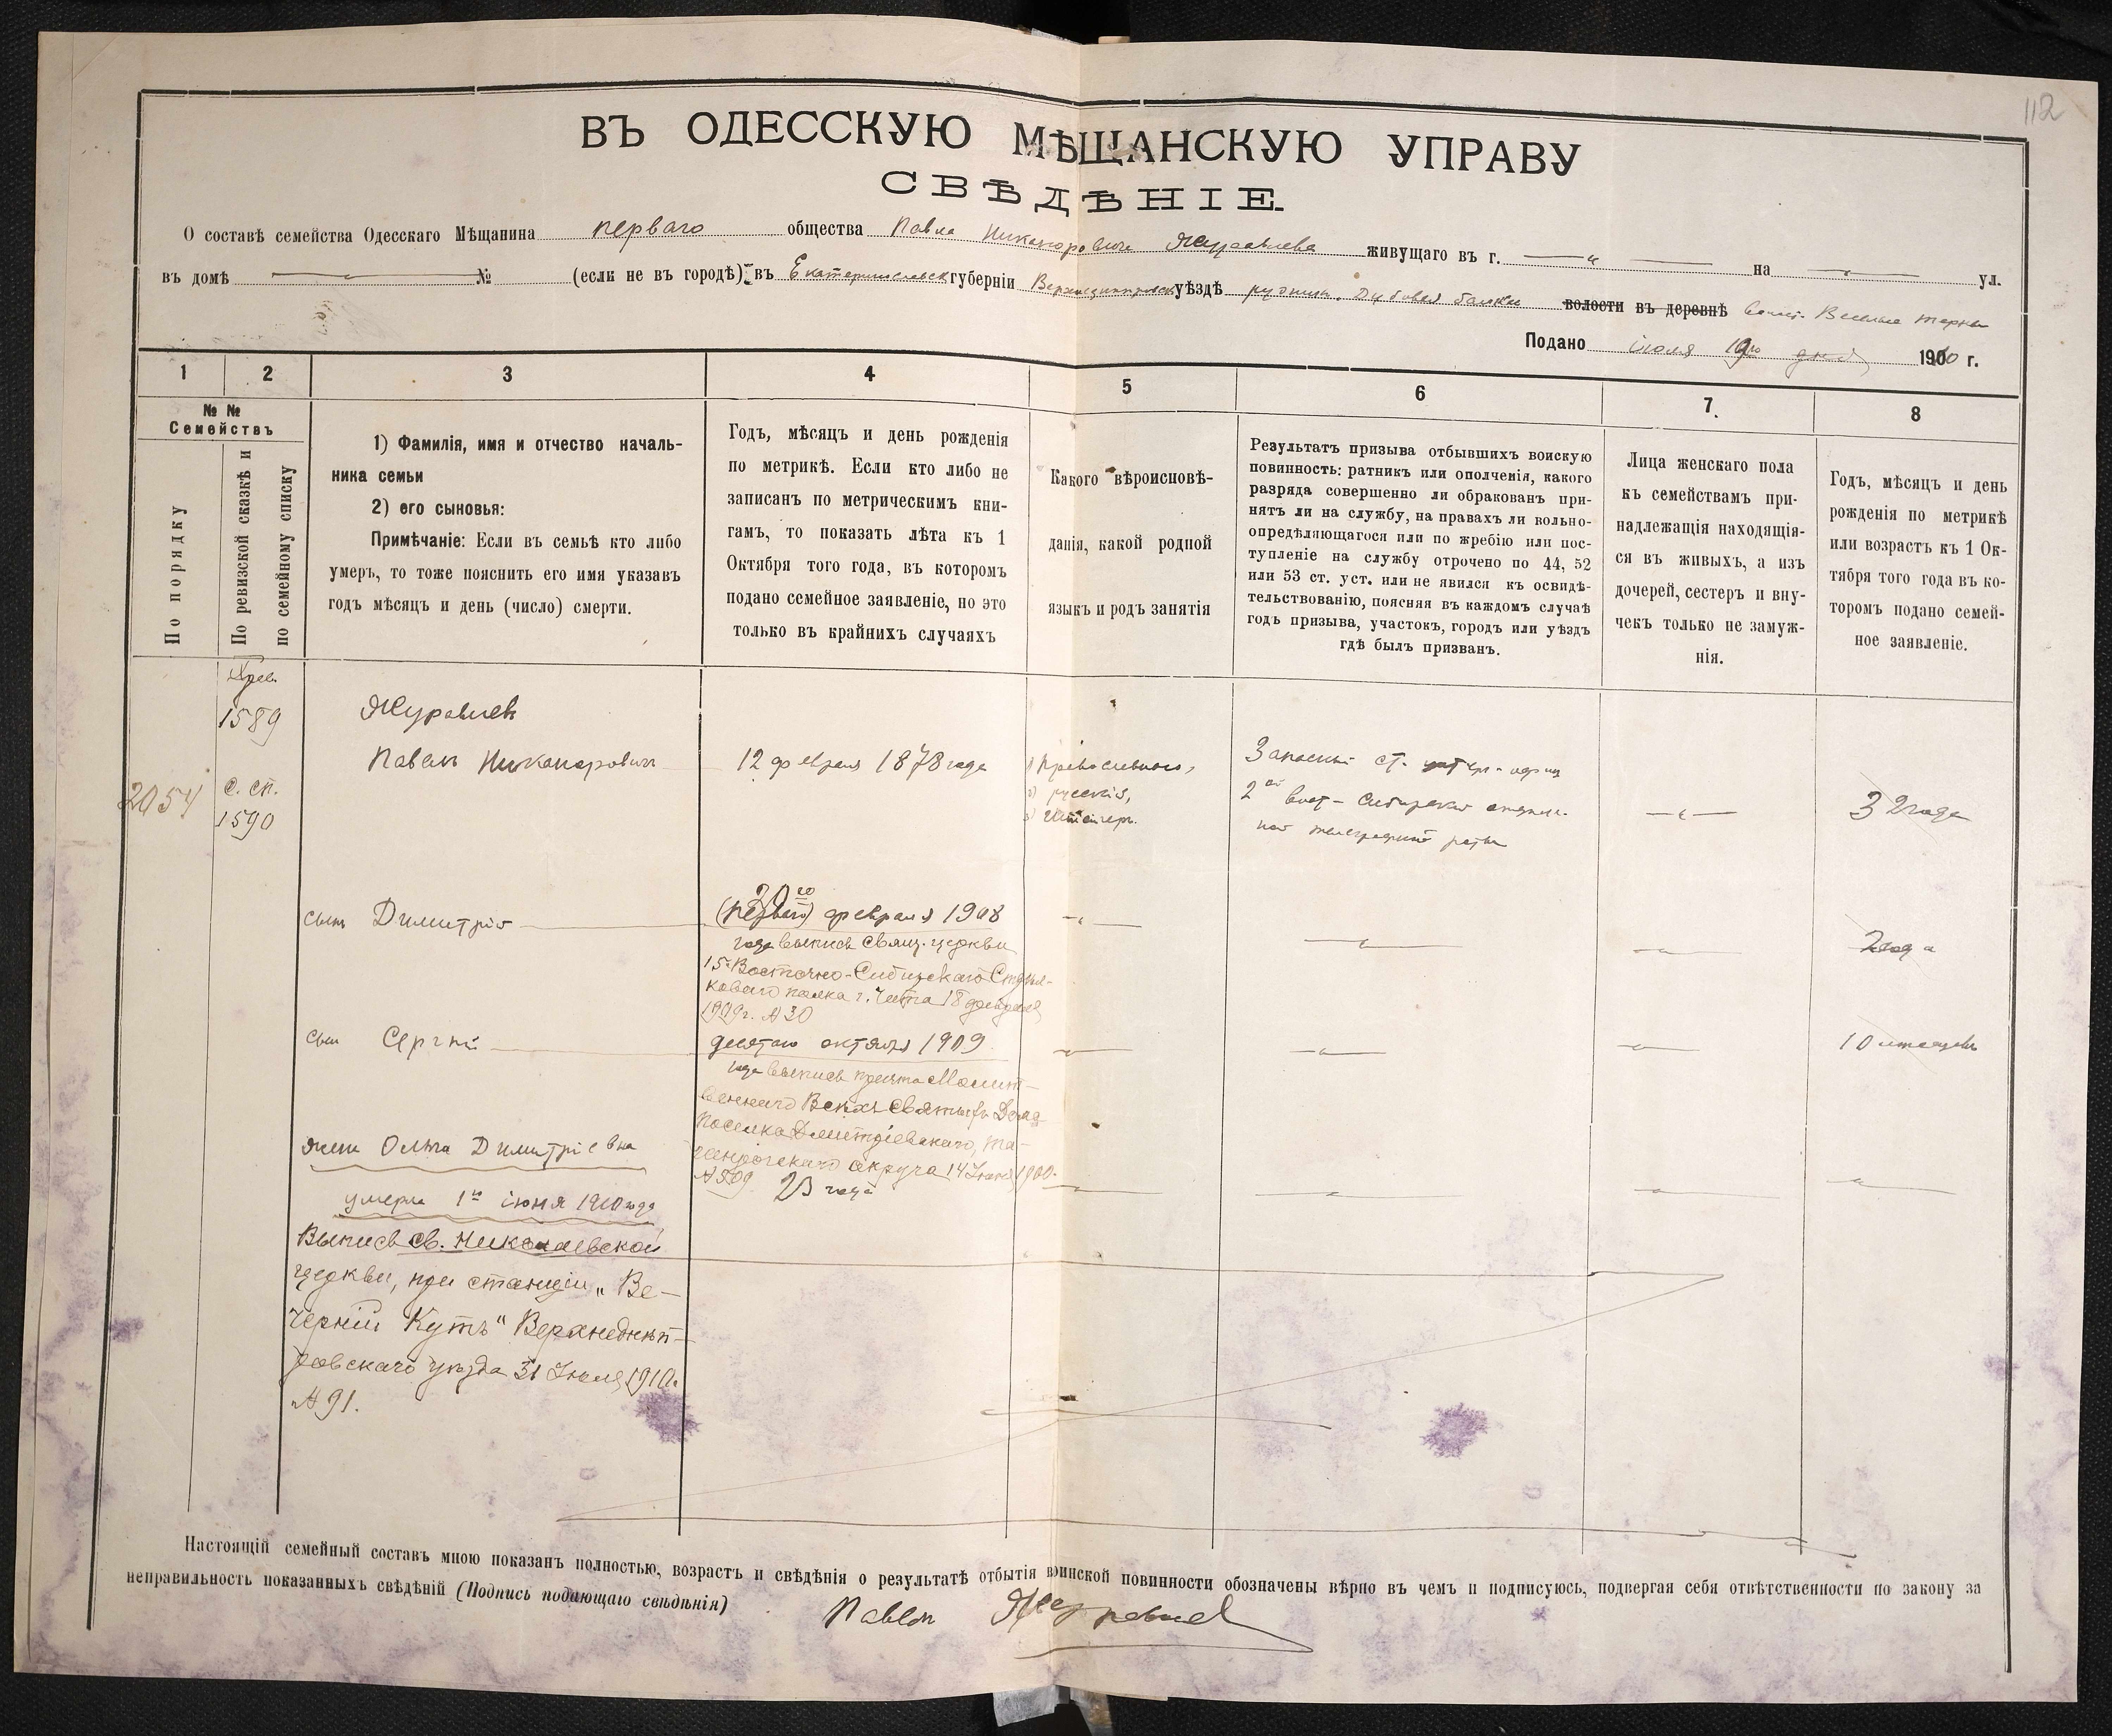 112
ВЪ ОДЕССКУЮ МѢЩАНСКУЮ УПРАВУ
СВѢДѢНІЕ.
О составѣ семейства Одесскаго Мѣщанина перваго общества Павла Никаноровича Журавлева живущаго въ г. на ул.
въ домѣ № (если не въ городѣ) въ Екатеринославск губерніи Верхнеднипровск уѣздѣ рудникъ Дубовая балка волости въ деревнѣ Веселые терны
Подано іюля 19го дня 1910 г.
1 2 3 4 5 6 7. 8
№ №
Семействъ
По порядку
По ревизской сказкѣ и
по семейному списку
1) Фамилія, имя и отчество началь-
ника семьи
2) его сыновья:
Примѣчаніе: Если въ семьѣ кто либо
умеръ, то тоже пояснить его имя указавъ
годъ мѣсяцъ и день (число) смерти.
Годъ, мѣсяцъ и день рожденія
по метрикѣ. Если кто либо не
записанъ по метрическимъ кни-
гамъ, то показать лѣта къ 1
Октября того года, въ которомъ
подано семейное заявленіе, но это
только въ крайнихъ случаяхъ
Какого вѣроисповѣ-
данія, какой родной
языкъ и родъ занятія
Результатъ призыва отбывшихъ воискую
повинность: ратникъ или ополченія, какого
разряда совершенно ли обракованъ при-
нятъ ли на службу, на правахъ ли вольно-
опредѣляющагося или по жребію или пос-
тупленіе на службу отрочено по 44, 52
или 53 ст. уст. или не явился къ освидѣ-
тельствованію, поясняя въ каждомъ случаѣ
годъ призыва, участокъ, городъ или уѣздъ
гдѣ былъ призванъ.
Лица женскаго пола
къ семействамъ при-
надлежащія находящія-
ся въ живыхъ, а изъ
дочерей, сестеръ и вну-
чекъ только не замуж-
нія.
Годъ, мѣсяцъ и день
рожденія по метрикѣ
или возрастъ къ 1 Ок-
тября того года въ ко-
торомъ подано семей-
ное заявленіе.
1589
2054
с. сп.
1590
Журавлевъ
Павелъ Никаноровичъ
12 февраля 1878 года
1) Православнаго,
2) русскій,
3)
Запасный ст. унтеръ-офиц
2ой вост-Сибирской
телеграфной роты
32 года
сынъ Димитрій
20го
(перваго) февраля 1908
года выпись Свящ. церкви
15 Восточно-Сибирскаго Стрѣл-
коваго полка г. Чита 18 февраля
1909г. № 30
2 года
сынъ Сергѣй
десятаго октября 1909
года выпись причта Молит-
веннаго Всѣхъ Святыхъ Дома
поселка Дмитріевскаго, та-
ганрогскаго округа 14 Іюня 1910
№ 509
10 мѣсяцевъ
жена Ольга Димитріевна
23 года
умерла 1го іюня 1910 года
Выпись св. Николаевской
церкви, при станціи „Ве-
черній Кутъ" Верхнеднѣп-
ровскаго уѣзда 31 Іюля 1910г.
№ 91.
Настоящій семейный составъ мною показанъ полностью, возрастъ и свѣдѣнія о результатѣ отбытія воинской повинности обозначены вѣрно въ чемъ и подписуюсь, подвергая себя отвѣтственности по закону за
неправильность показанныхъ свѣдѣній (Подпись подающаго свѣдѣнія)
Павелъ Журавлев